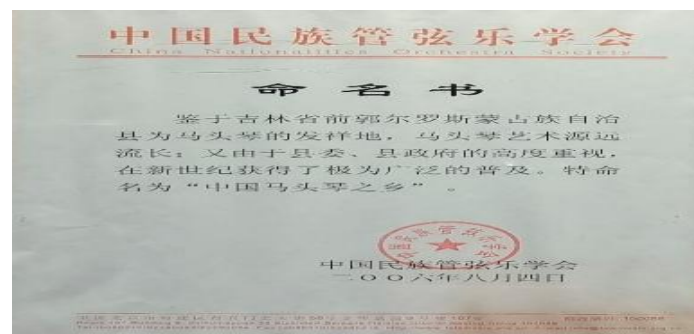 中国民族管弦乐学会
China Nationalities Orchestra Society
命名书
鉴于吉林省前郭尔罗斯蒙古族自治
县为马头琴的发祥地，马头琴艺术源远
流长；又由于县委、县政府的高度重视，
在新世纪获得了极为广泛的普及。特命
名为“中国马头琴之乡”。
中国民族管弦乐学会
二〇〇六年八月四日